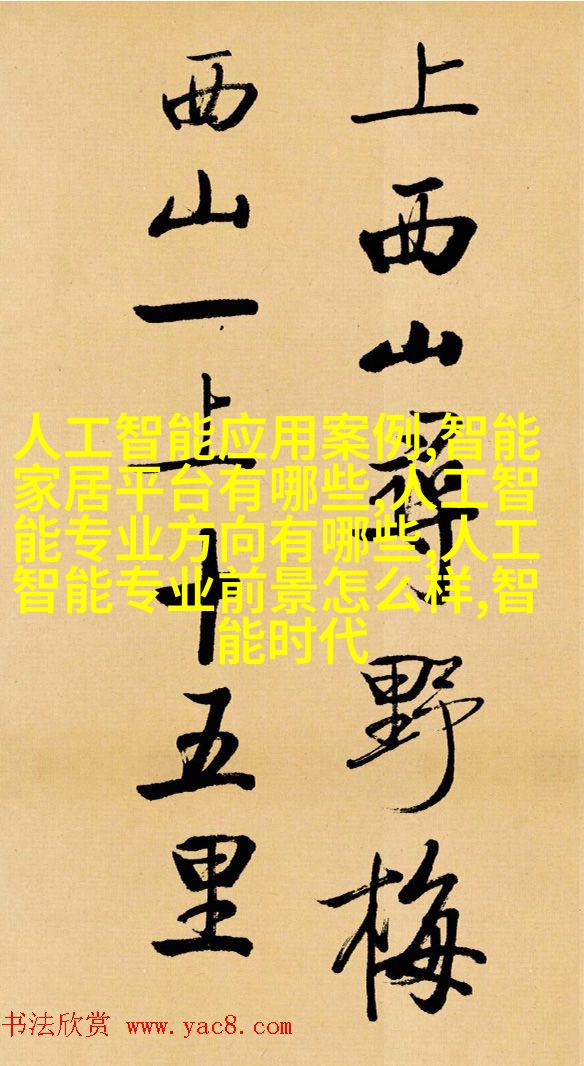 上西山尋野梅
西山一上十五里
人工智能应用案例,智能
家居平台有哪些,人工智
能专业方向有哪些,人工
智能专业前景怎么样,智
能时代
书法欣赏 www.yac8.com